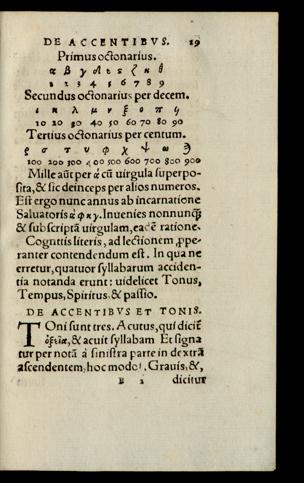 DE ACCENTIBVS. 19
Primus octonarius.
α β γ δ ε ς ζ η θ
1 2 3 4 5 6 7 8 9
Secundus octonarius per decem.
ι κ λ μ ν ξ ο π ϟ
10 20 30 40 50 60 70 80 90
Tertius octonarius per centum.
ρ σ τ υ φ χ ψ ω ϡ
100 200 300 400 500 600 700 800 900
Mille aūt per ά cū uirgula superpo-
sita, & sic deinceps per alios numeros.
Est ergo nunc annus ab incarnatione
Saluatoris ά φ κ γ. Inuenies nonnunq̄
& subscriptā uirgulam, eadē ratione.
Cognitis literis, ad lectionem, ꝓpe-
ranter contendendum est. In qua ne
erretur, quatuor syllabarum acciden-
tia notanda erunt: uidelicet Tonus,
Tempus, Spiritus, & passio.
DE ACCENTIBVS ET TONIS.
TOni sunt tres. Acutus, qui dicit̄
ὀξεῖα, & acuit syllabam Et signa
tur per notā à sinistra parte in dextrā
ascendentem, hoc modo ́. Grauis, &,
B 2 dicitur